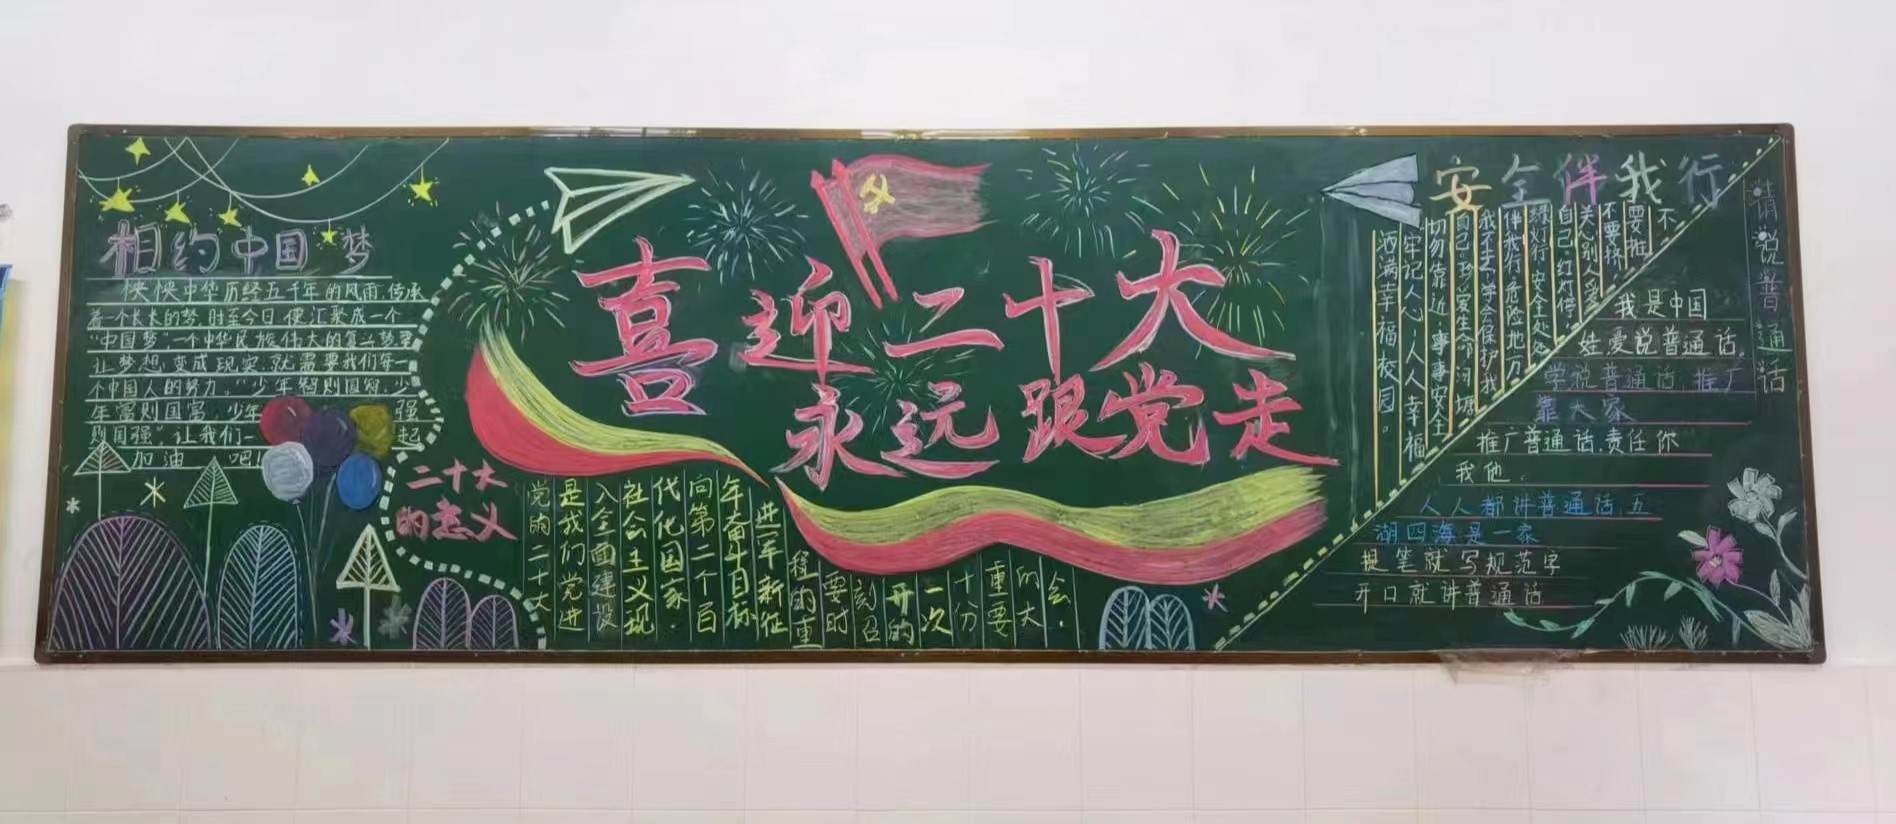 相约中国梦
怏怏中华历经五千年的风雨,传承
着一个长长的梦,时至今日,便汇聚成一个
“中国梦”一个中华民族伟大的复兴梦要
让梦想,变成现实,就需要我们每一
个中国人的努力。“少年智则国智,少
年富则国富,少年强
则国强”,让我们一起
加油吧!
喜迎二十大
永远跟党走
二十大
的意义
党的二十大
是我们党进
入全面建设
社会主义现
代化国家,
向第二个百
年奋斗目标
进军新征
程的重
要时
刻召
开的
一次
十分
重要
的大
会。
安全伴我行
不
要推
不要挤
关心别人爱
自己,红灯停
绿灯行,安全处处
伴我行,危险地方
我不去,学会保护我
自己,珍爱生命,河塘
切勿靠近,事事安全
牢记人心,人人幸福
洒满幸福校园。
请说普通话
我是中国
娃爱说普通话,
学说普通话,推广
靠大家
推广普通话,责任你
我他,
人人都讲普通话,五
湖四海是一家
提笔就写规范字
开口就讲普通话